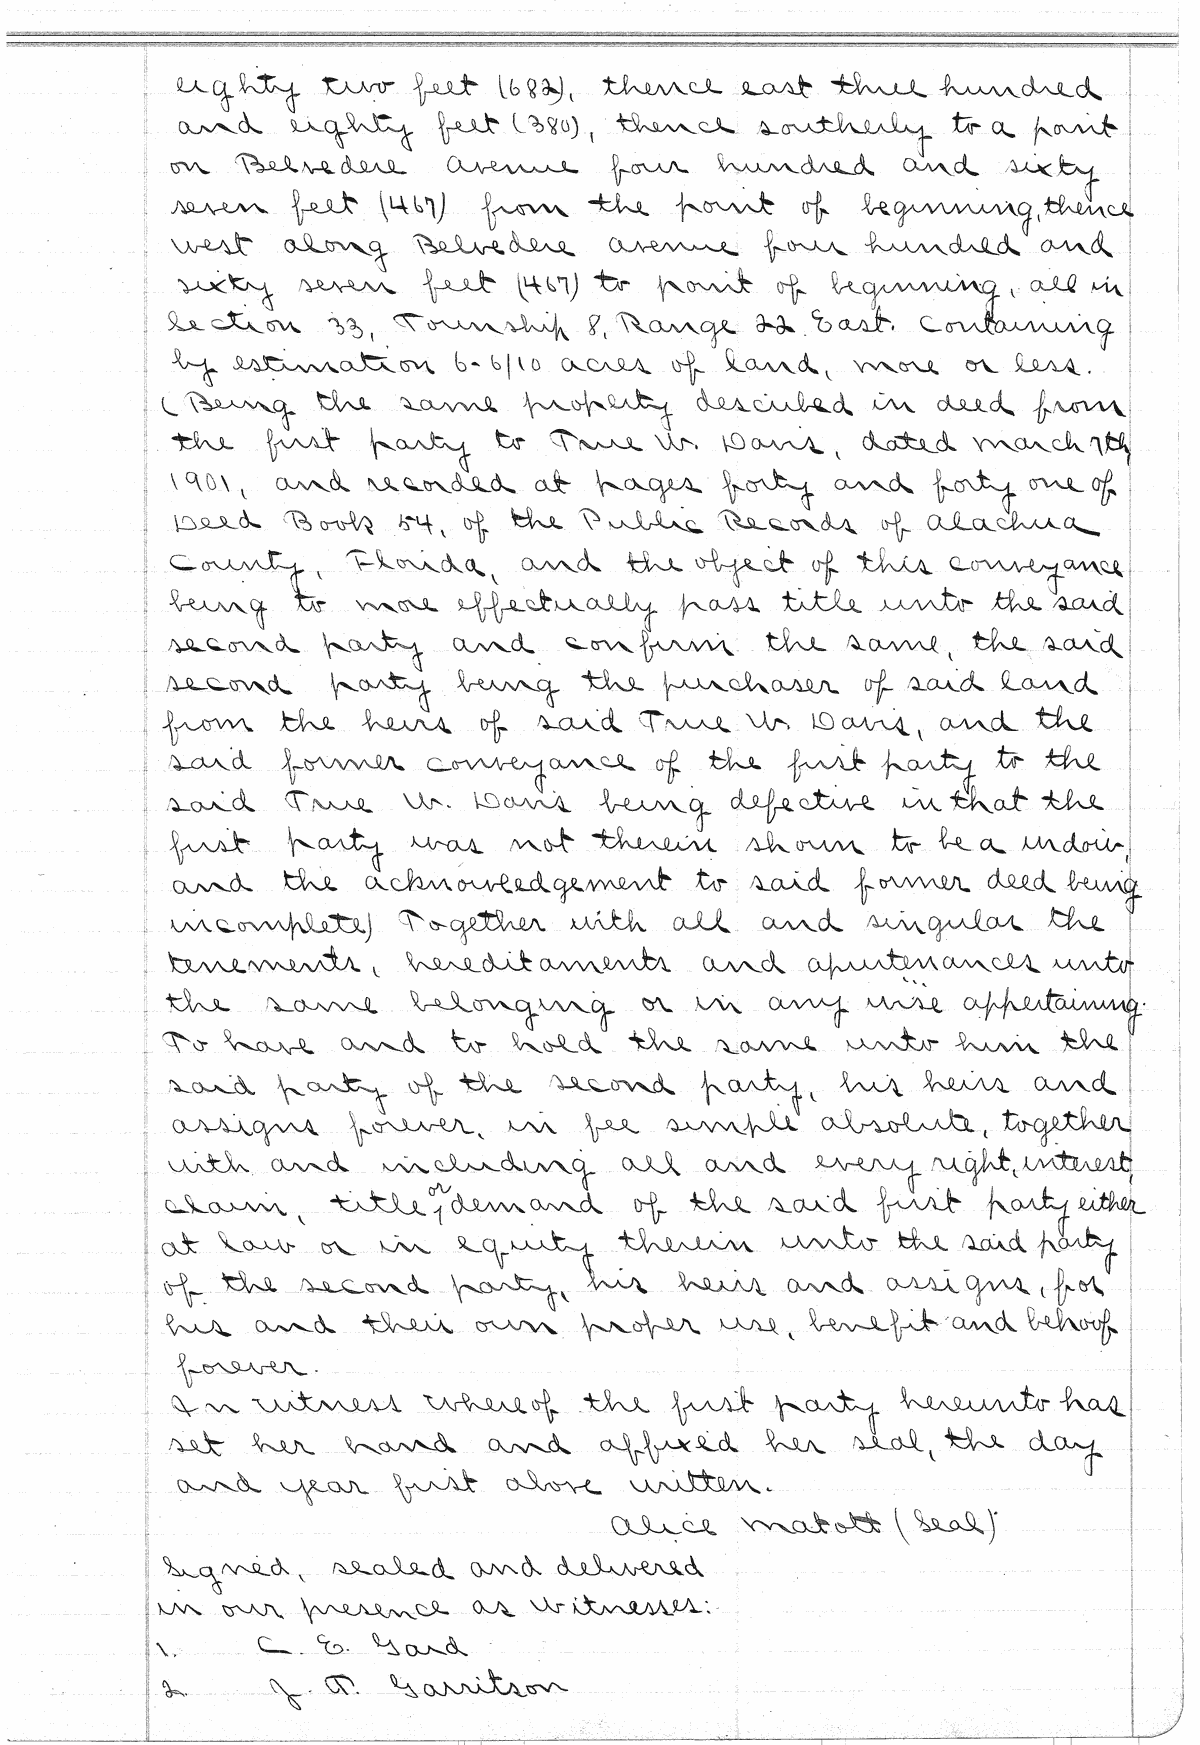 eighty two feet (682), thence east three hundred
and eighty feet (380), thence southerly to a point
on Belvedere Avenue four hundred and sixty
seven feet (467) from the point of beginning, thence
west along Belvedere avenue four hundred and
sixty seven feet (467) to point of beginning, all in
Section 33, Township 8, Range 22 East. Containing
by estimation 6-6/10 acres of land, more or less.
(Being the same property described in deed from
the first party to True W. Davis, dated March 7th,
1901, and recorded at pages forty and forty one of
Deed Book 54, of the Public Records of Alachua
County, Florida, and the object of this conveyance
being to more effectually pass title unto the said
second party and confirm the same, the said
second party being the purchaser of said land
from the heirs of said True W. Davis, and the
said former conveyance of the first party to the
said True W. Davis being defective in that the
first party was not therein shown to be a widow,
and the acknowledgement to said former deed being
incomplete) Together with all and singular the
tenements, hereditaments and apurtenances unto
the same belonging or in any wise appertaining.
To have and to hold the same unto him the
said party of the second party, his heirs and
assigns forever, in fee simple absolute, together
with and including all and every right, interest,
claim, title, or demand of the said first party either
at law or in equity therein unto the said party
of the second party, his heirs and assigns, for
his and their own proper use, benefit and behoof
forever.
In witness whereof the first party hereunto has
set her hand and affixed her seal, the day
and year first above written.
Alice Matott (Seal)
Signed, sealed and delivered
in our presence as witnesses:
1. C. E. Gard
2. J. T. Garritson